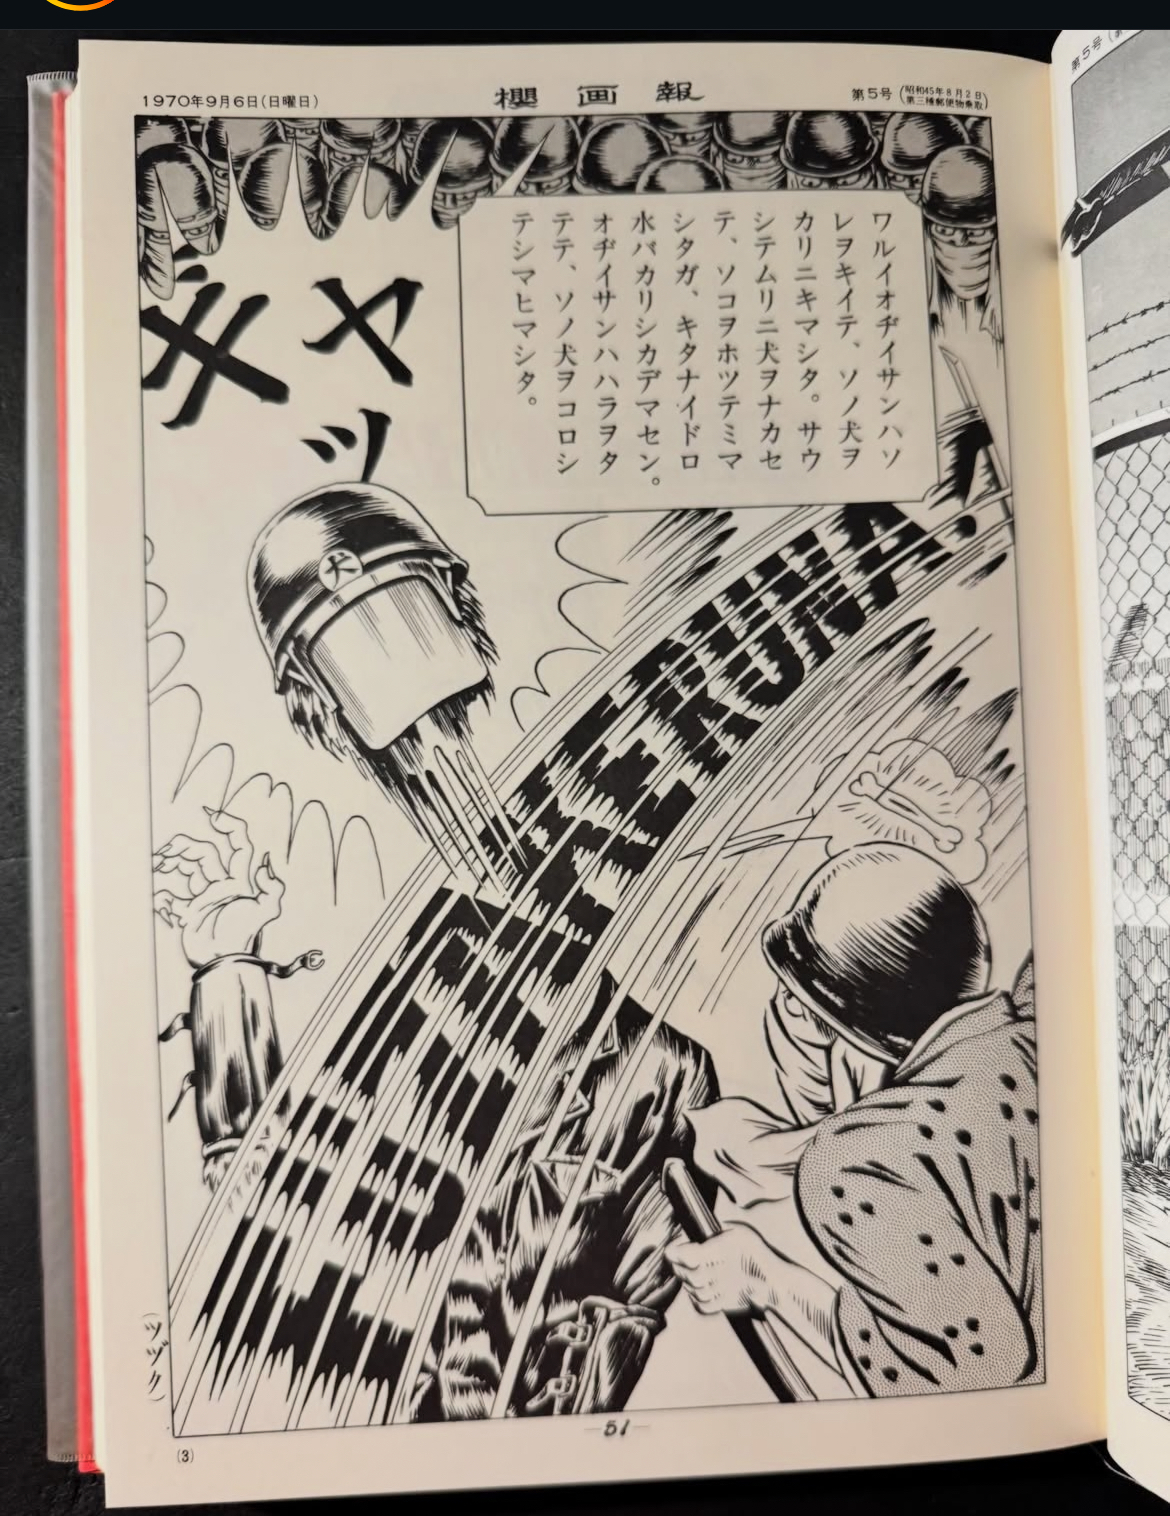 1970年9月6日(日曜日)
櫻画報
第5号
(昭和45年8月2日
第三種郵便物乗取)
ワルイオヂイサンハソ
レヲキイテ、ソノ犬ヲ
カリニキマシタ。サウ
シテムリニ犬ヲナカセ
テ、ソコヲホツテミマ
シタガ、キタナイドロ
水バカリシカデマセン。
オヂイサンハハラヲタ
テテ、ソノ犬ヲコロシ
テシマヒマシタ。
ギャッ
犬
FUZAKERUNA.
(ツヅク)
51
(3)
第5号